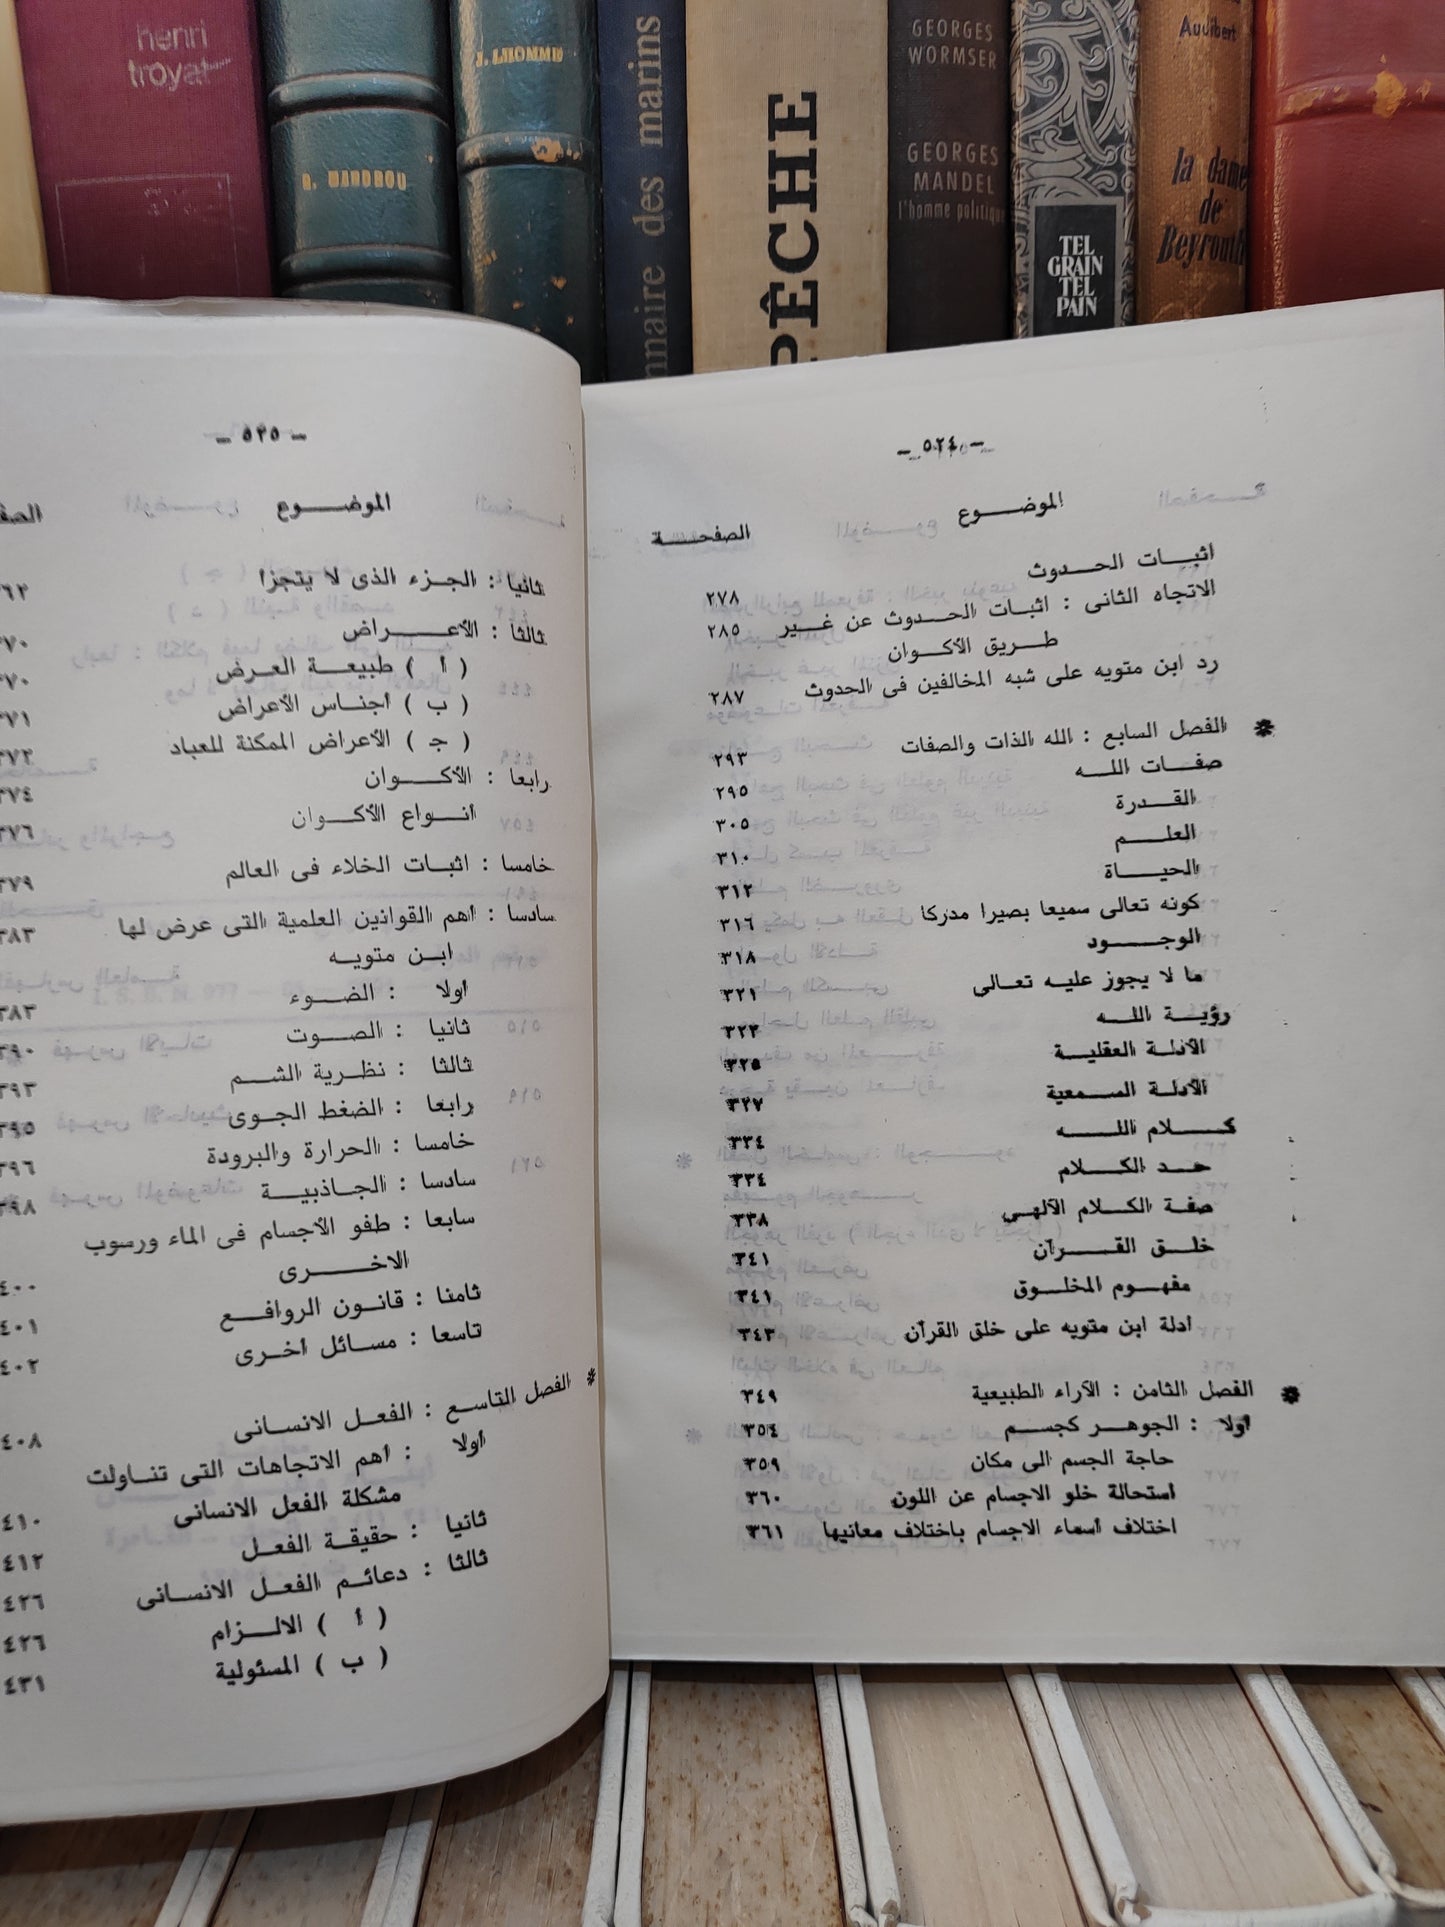 henri
troyat
R. MANDROU
J. LHOMME
nnaire des marins
PÊCHE
GEORGES
WORMSER
GEORGES
MANDEL
l'homme politique
TEL
GRAIN
TEL
PAIN
Audibert
la dame
de
Beyrouth
– ٥٢٤ –
الموضـــــوع الصفحـــــة
اثبـــات الحـــدوث ٢٧٨
الاتجاه الثانى : اثبــات الحــدوث عن غــير ٢٨٥
طــريق الأكـــوان
رد ابن متويه على شبه المخالفين فى الحدوث ٢٨٧
* الفصل السابع : الله الذات والصفات ٢٩٣
صفــات اللــه ٢٩٥
القـــدرة ٣٠٥
العلـــم ٣١٠
الحيـــاة ٣١٢
كونه تعالى سميعا بصيرا مدركا ٣١٦
الوجـــود ٣١٨
ما لا يجوز عليــه تعــالى ٣٢١
رؤيــة اللــه ٣٢٣
الأدلــة العقليــة ٣٢٥
الأدلة الســمعية ٣٢٧
كـــلام اللـــه ٣٣٤
حــد الكـــلام ٣٣٤
صفــة الكــلام الآلهــى ٣٣٨
خلــق القـــرآن ٣٤١
مفهـــوم المخلــوق ٣٤١
ادلة ابن متويه على خلق القرآن ٣٤٣
* الفصل الثامن : الآراء الطبيعية ٣٤٩
أولا : الجوهــر كجســم ٣٥٤
حاجة الجسم الى مكان ٣٥٩
استحالة خلو الاجسام عن اللون ٣٦٠
اختلاف أسماء الاجسام باختلاف معانيها ٣٦١
– ٥٢٥ –
الموضـــــوع الصفـ
ثانيا : الجــزء الذى لا يتجزا ٦٢
ثالثا : الأعـــــراض ٧٠
( أ ) طبيعــة العــرض ٧٠
( ب ) أجنــاس الأعراض ٧١
( جـ ) الأعراض الممكنة للعباد ٧٢
رابعا : الأكـــوان ٧٤
انــواع الأكــوان ٧٦
خامسا : اثبــات الخلاء فى العالم ٧٩
سادسا : أهم القوانين العلمية التى عرض لها ٨٣
ابــن متويــه
أولا : الضــوء ٨٣
ثانيا : الصــوت ٩٠
ثالثا : نظــرية الشــم ٩٣
رابعا : الضغط الجــوى ٩٥
خامسا : الحرارة والبرودة ٩٦
سادسا : الجــاذبيــة ٩٨
سابعا : طفو الأجسام فى الماء ورسوب
الاخـــــرى ٤٠٠
ثامنا : قانــون الروافــع ٤٠١
تاسعا : مســائل أخــرى ٤٠٢
* الفصل التاسع : الفعــل الانســانى ٤٠٨
أولا : أهم الاتجاهات التى تنــاولت
مشكلة الفعل الانسانى ٤١٠
ثانيا : حقيقــة الفعــل ٤١٢
ثالثا : دعائــم الفعــل الانســانى ٤٢٦
( أ ) الالــــزام ٤٢٦
( ب ) المسئولية ٤٣١